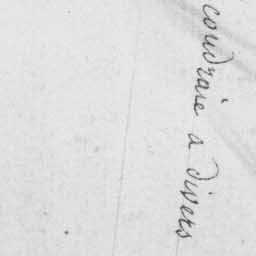 coudraie a divers